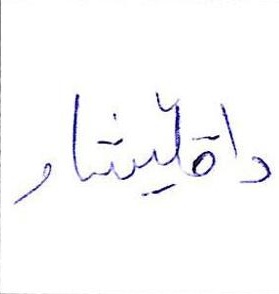 داقليشار